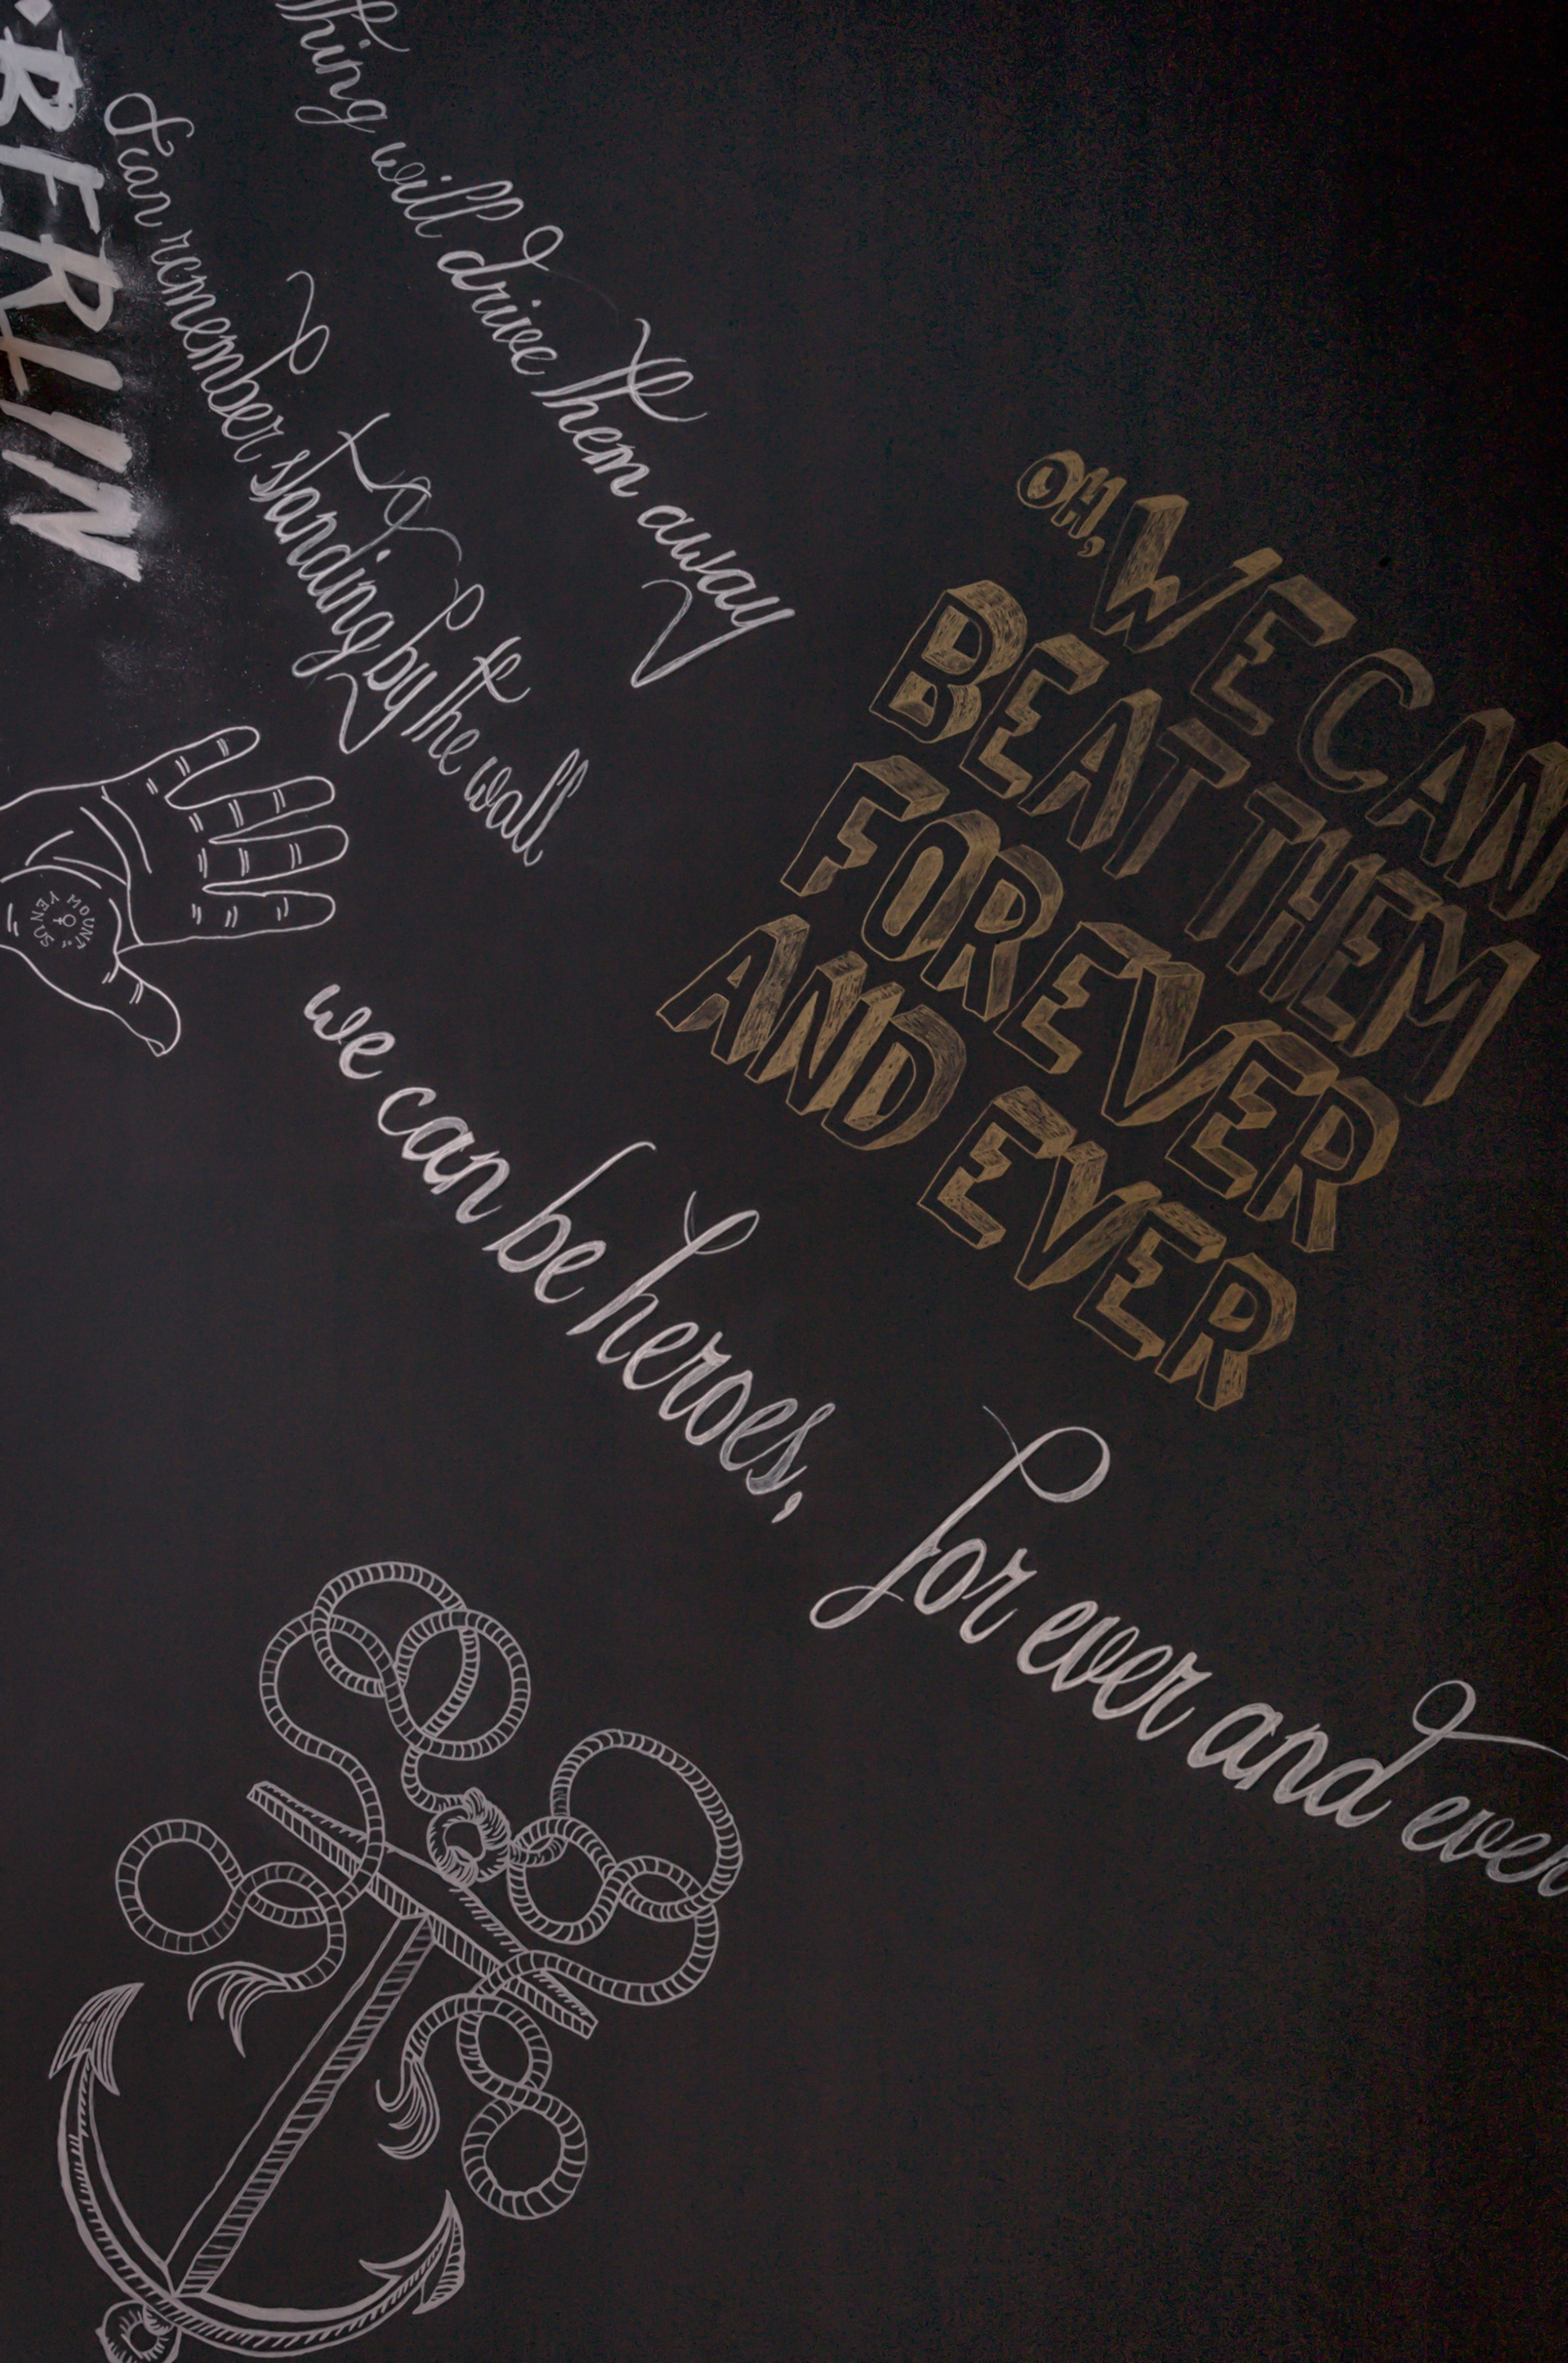 BERLIN
thing will drive them away
I can remember standing by the wall
OH, WE CAN
BEAT THEM
FOREVER
AND EVER
MOUNT OF VENUS
we can be heroes,
for ever and ever